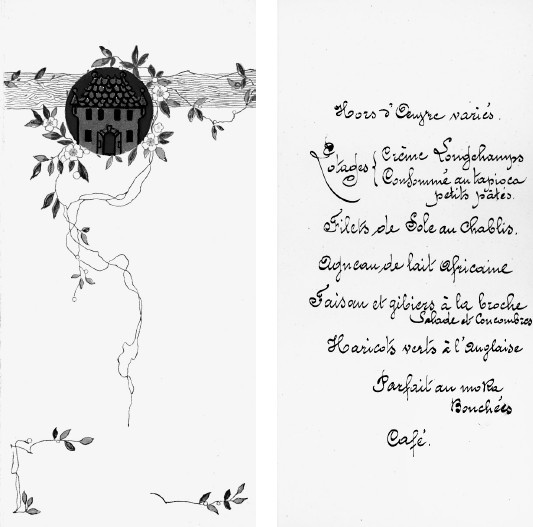 Hors d'Œuvre variés.
Potages { Crème Longchamps
Consommé au tapioca
petits pâtés.
Filets de Sole au Chablis.
Agneau de lait Africaine
Faisan et gibiers à la broche
Salade et Concombres
Haricots verts à l'Anglaise
Parfait au moka
Bouchées
Café.